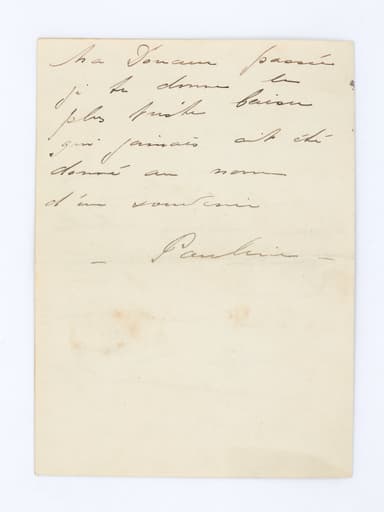 Ma Douceur passée
je te donne le
plus triste baiser
qui jamais ait été
donné au nom
d'un souvenir
— Pauline —